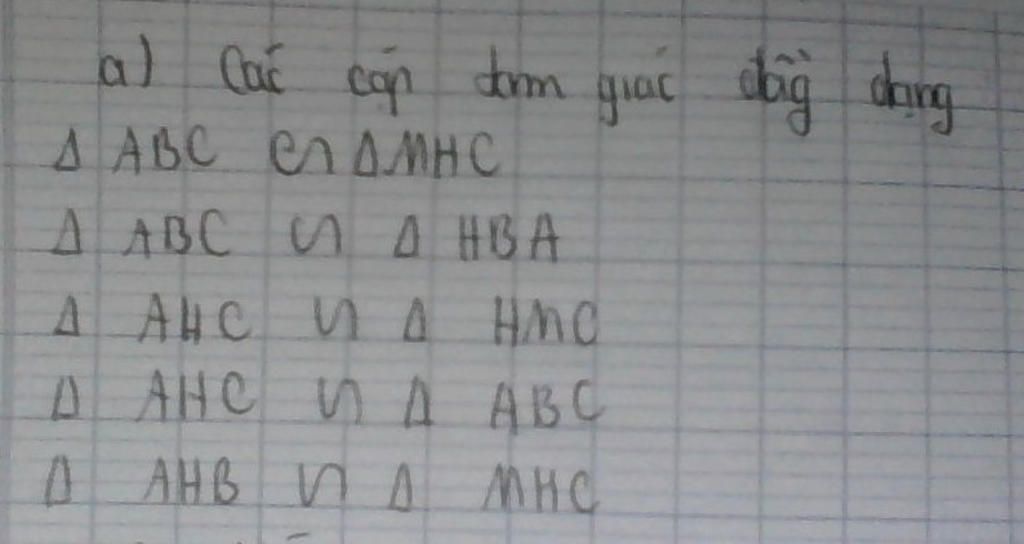 a) Các cặp tam giác đồg dạng
Δ ABC ∽ Δ MHC
Δ ABC ∽ Δ HBA
Δ AHC ∽ Δ HMC
Δ AHC ∽ Δ ABC
Δ AHB ∽ Δ MHC